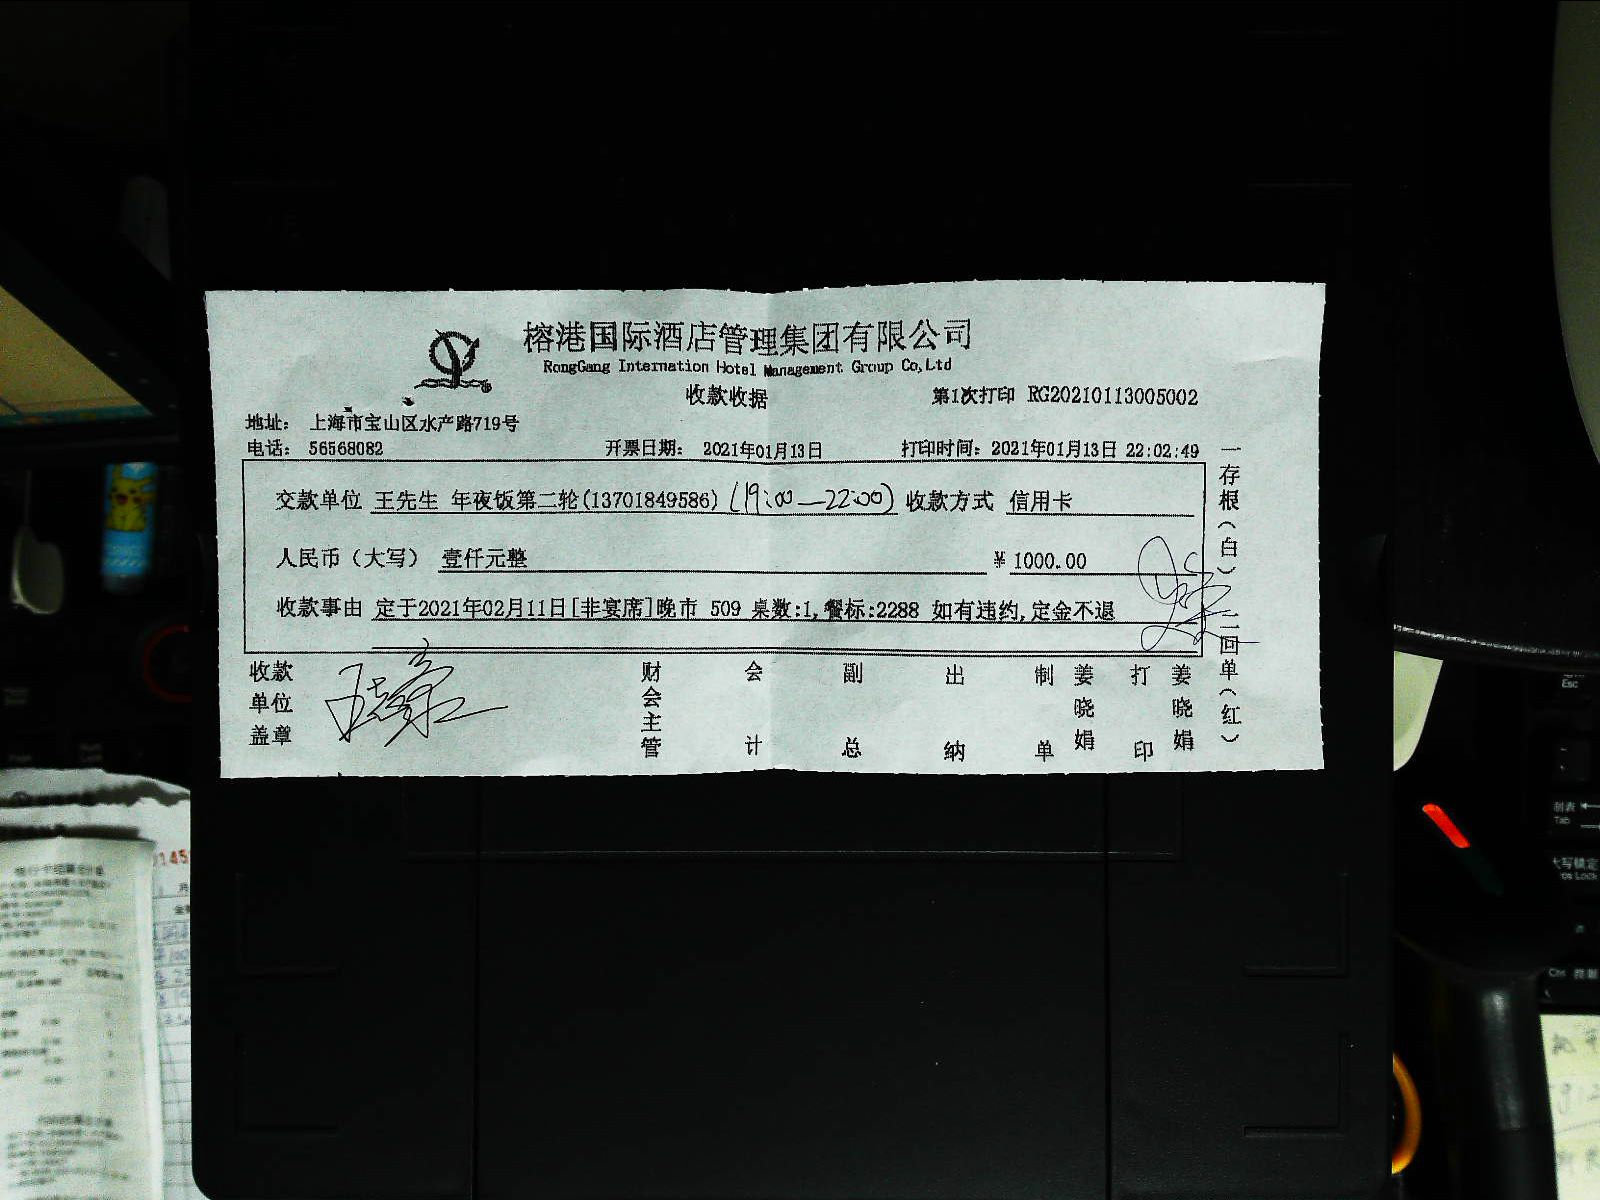 榕港国际酒店管理集团有限公司
RongGang Internation Hotel Management Group Co,Ltd
收款收据
第1次打印 RG20210113005002
地址: 上海市宝山区水产路719号
电话: 56568082 开票日期: 2021年01月13日 打印时间: 2021年01月13日 22:02:49
交款单位 王先生 年夜饭第二轮(13701849586) (19:00—22:00) 收款方式 信用卡
人民币（大写） 壹仟元整 ¥ 1000.00
收款事由 定于2021年02月11日[非宴席]晚市 509 桌数:1,餐标:2288 如有违约,定金不退
收款单位盖章
财会主管
会计
副总
出纳
制单 姜晓娟
打印 姜晓娟
一存根(白) 二回单(红)
Esc
Tab